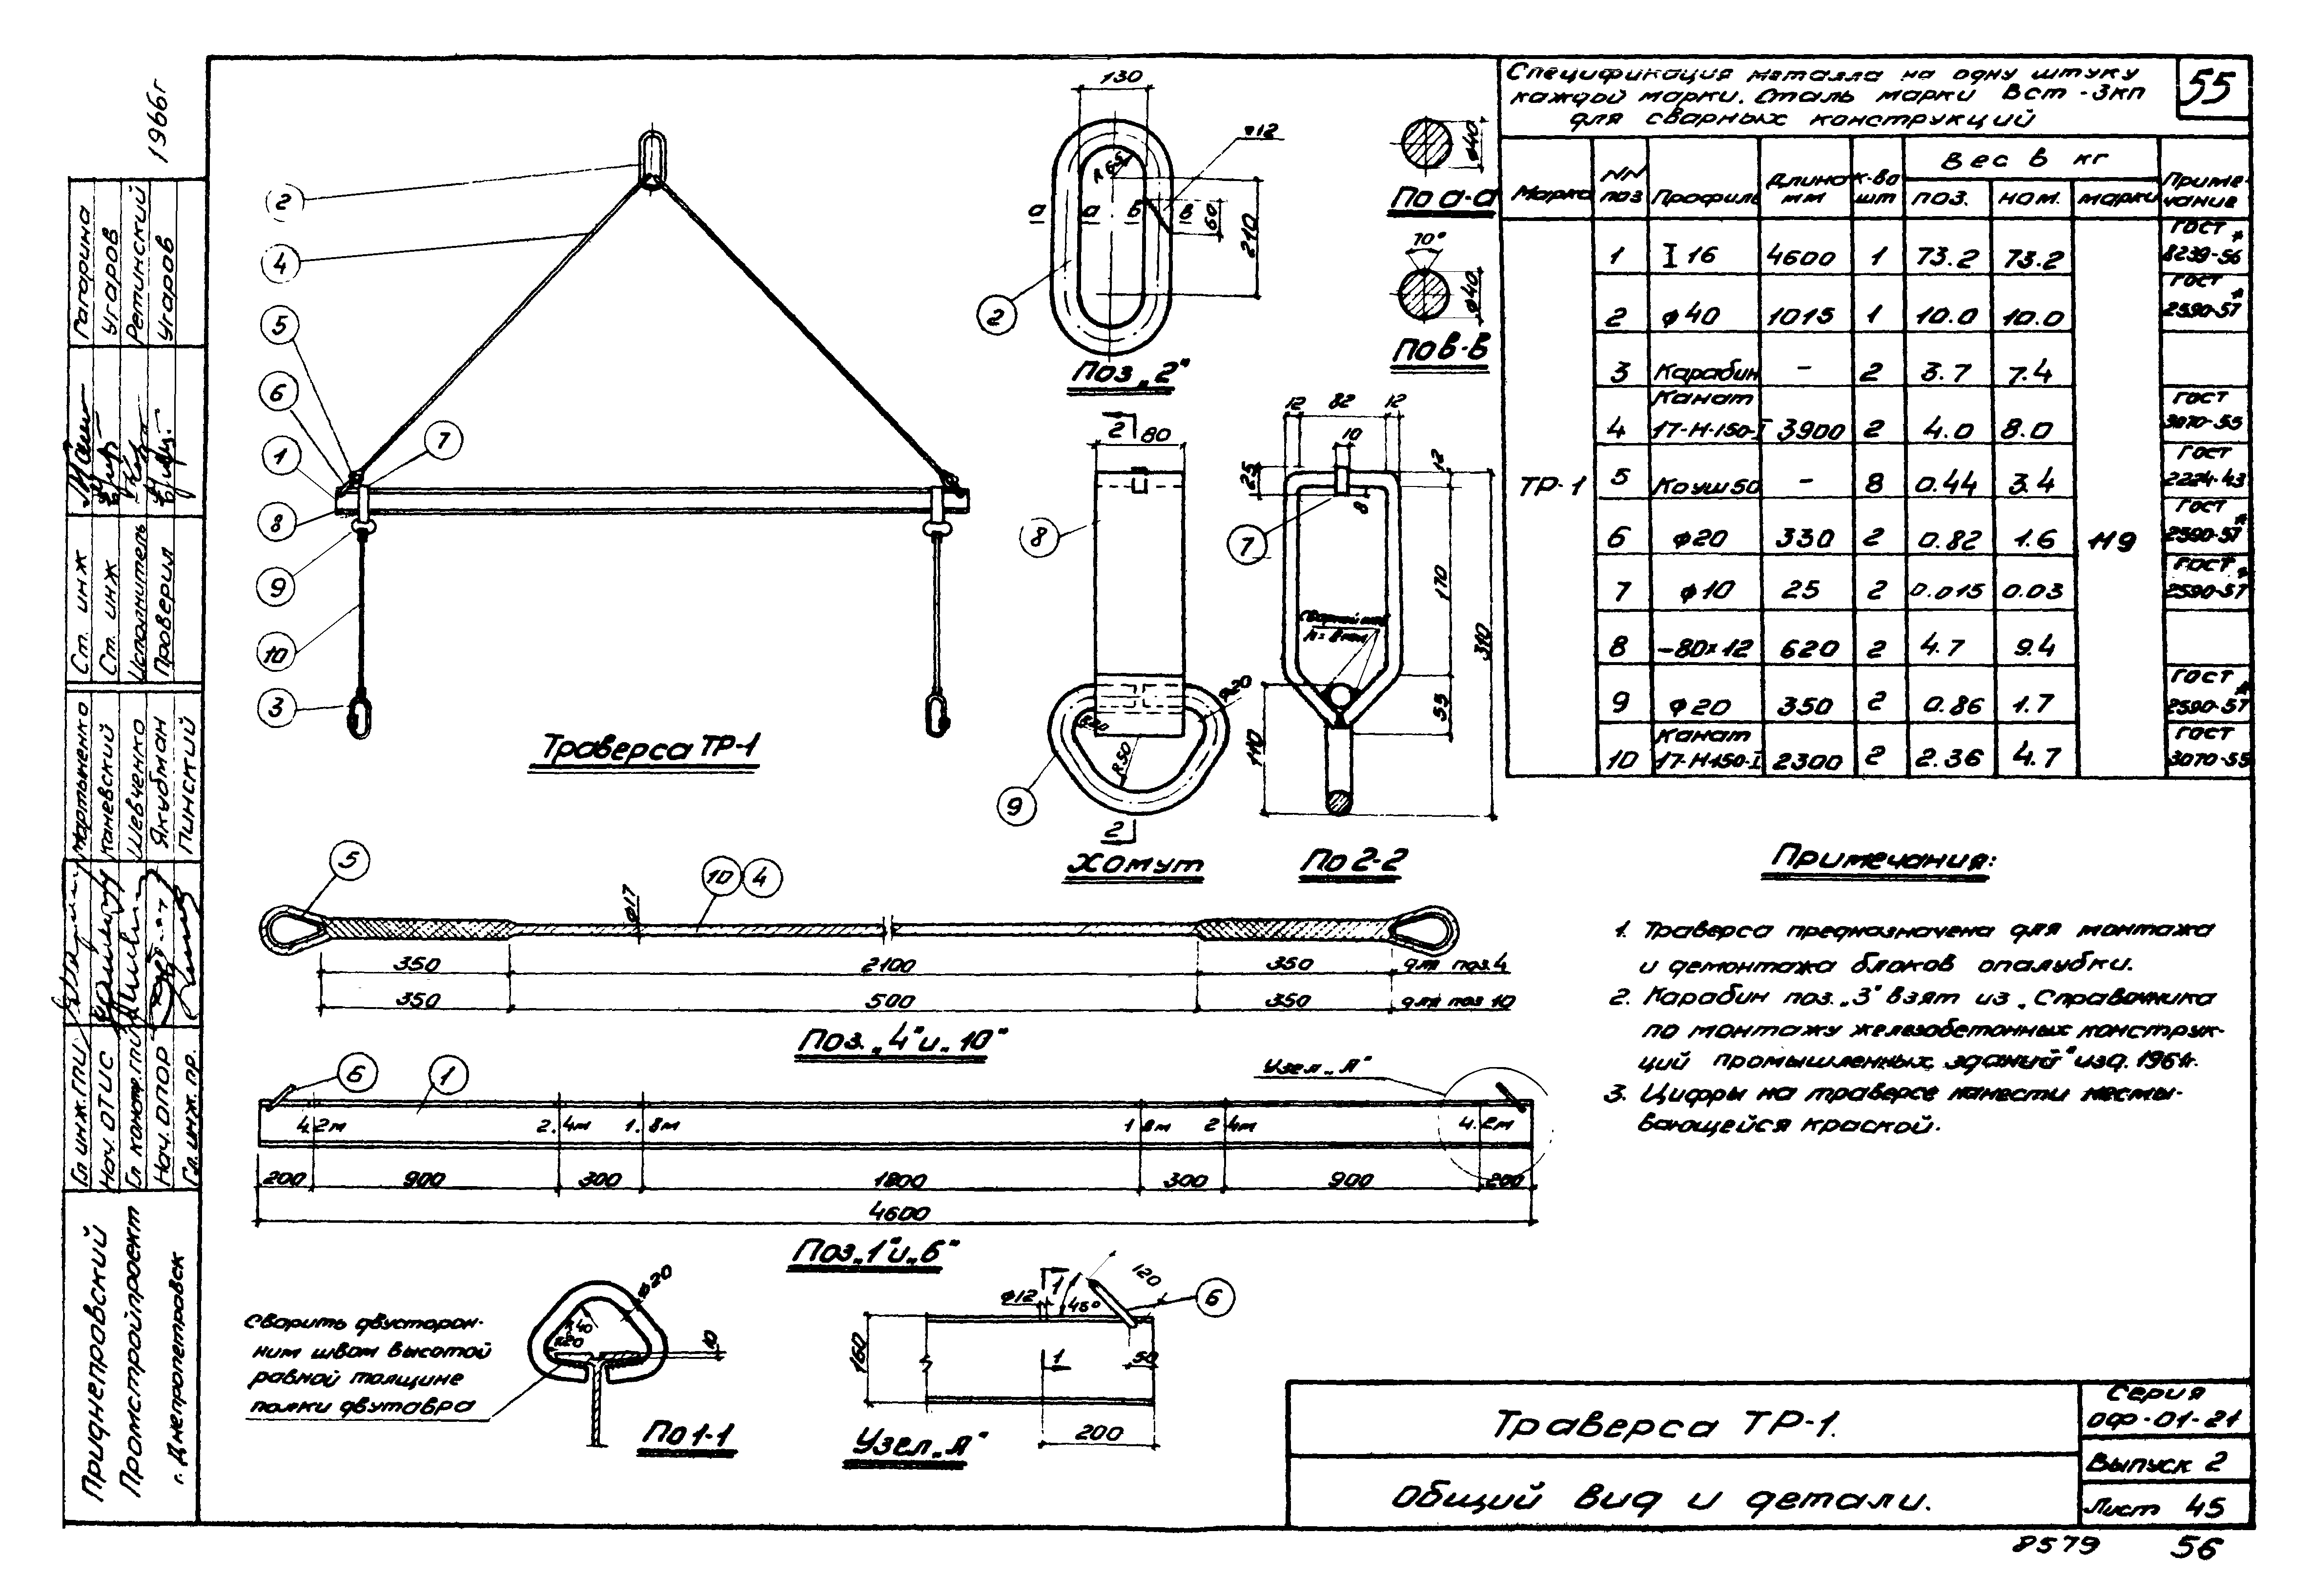 55
Спецификация металла на одну штуку
каждой марки. Сталь марки Вст-3кп
для сварных конструкций
Марка NN поз Профиль Длина мм к-во шт Вес в кг Примечание
поз. ном. марки
ТР-1 119
1 I 16 4600 1 73.2 73.2 ГОСТ 8239-56*
2 ф40 1015 1 10.0 10.0 ГОСТ 2590-57*
3 Карабин - 2 3.7 7.4
4 Канат 17-Н-150-I 3900 2 4.0 8.0 ГОСТ 3070-55
5 Коуш 50 - 8 0.44 3.4 ГОСТ 2224-43
6 ф20 330 2 0.82 1.6 ГОСТ 2590-57*
7 ф10 25 2 0.015 0.03 ГОСТ 2590-57*
8 -80x12 620 2 4.7 9.4
9 ф20 350 2 0.86 1.7 ГОСТ 2590-57*
10 Канат 17-Н-150-I 2300 2 2.36 4.7 ГОСТ 3070-55
2
4
5
6
1
7
8
9
10
3
Траверса ТР-1
130
R65
а а б в
60
210
2
Поз „2"
ф40
По а-а
70°
ф40
По в-в
2
80
8
R20
R50
ф20
9
2
Хомут
12 82 12
10
25
8
12
7
170
Сварной шов
h=8мм
310
55
110
По 2-2
5
ф17
10 4
350 2100 350 для поз.4
350 500 350 для поз 10
Поз. „4" и „10"
6
1
Узел „А"
4.2м 2.4м 1.8м 1.8м 2.4м 4.2м
200 900 300 1800 300 900 200
4600
Поз „1" и „6"
Сварить двусторон-
ним швом высотой
равной толщине
полки двутавра
R40
R20
ф20
10
По 1-1
ф12
1
45°
120
6
160
1
50
200
Узел „А"
Примечания:
1. Траверса предназначена для монтажа
и демонтажа блоков опалубки.
2. Карабин поз. „3" взят из „Справочника
по монтажу железобетонных конструк-
ций промышленных зданий" изд. 1964г.
3. Цифры на траверсе нанести несмы-
вающейся краской.
Траверса ТР-1.
Общий вид и детали.
Серия
ОФ-01-21
Выпуск 2
Лист 45
8579 56
1966г
Гагарина
Угаров
Ретинский
Угаров
Ст. инж
Ст. инж
Исполнитель
Проверил
Мартыненко
Каневский
Шевченко
Якубман
Пинский
Гл инж. ГПИ
Нач. ОТИС
Гл констр. ГПИ
Нач. ОПОР
Гл. инж. пр.
Приднепровский
Промстройпроект
г. Днепропетровск